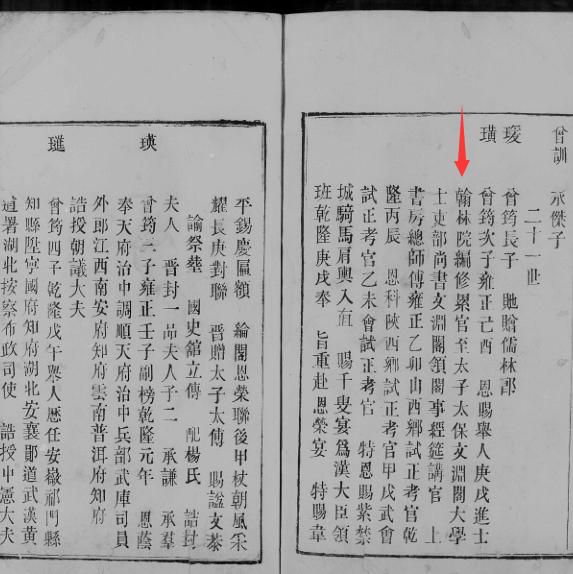 曾訓 承傑子
二十一世
瑗 曾筠長子 貤贈儒林郎
璜 曾筠次子雍正己酉 恩賜舉人庚戌進士
翰林院編修累官至太子太保文淵閣大學
士吏部尚書文淵閣領閣事經筵講官 上
書房總師傅雍正乙卯山西鄉試正考官乾
隆丙辰 恩科陝西鄉試正考官甲戌武會
試正考官乙未會試正考官 特恩賜紫禁
城騎馬肩輿入直 賜千叟宴爲漢大臣領
班乾隆庚戌奉 旨重赴恩榮宴 特賜韋
平錫慶匾額 綸閣恩榮聯後甲杖朝風采
耀長庚對聯 晉贈太子太傅 賜諡文恭
諭祭塟 國史館立傳 配楊氏 誥封
夫人 晉封一品夫人子二 承謙 承羣
瑛 曾筠三子雍正壬子副榜乾隆元年 恩蔭
奉天府治中調順天府治中兵部武庫司員
外郎江西南安府知府雲南普洱府知府
誥授朝議大夫
璡 曾筠四子乾隆戊午舉人歷任安徽祁門縣
知縣陞寧國府知府湖北安襄鄖道武漢黃
道署湖北按察布政司使 誥授中憲大夫